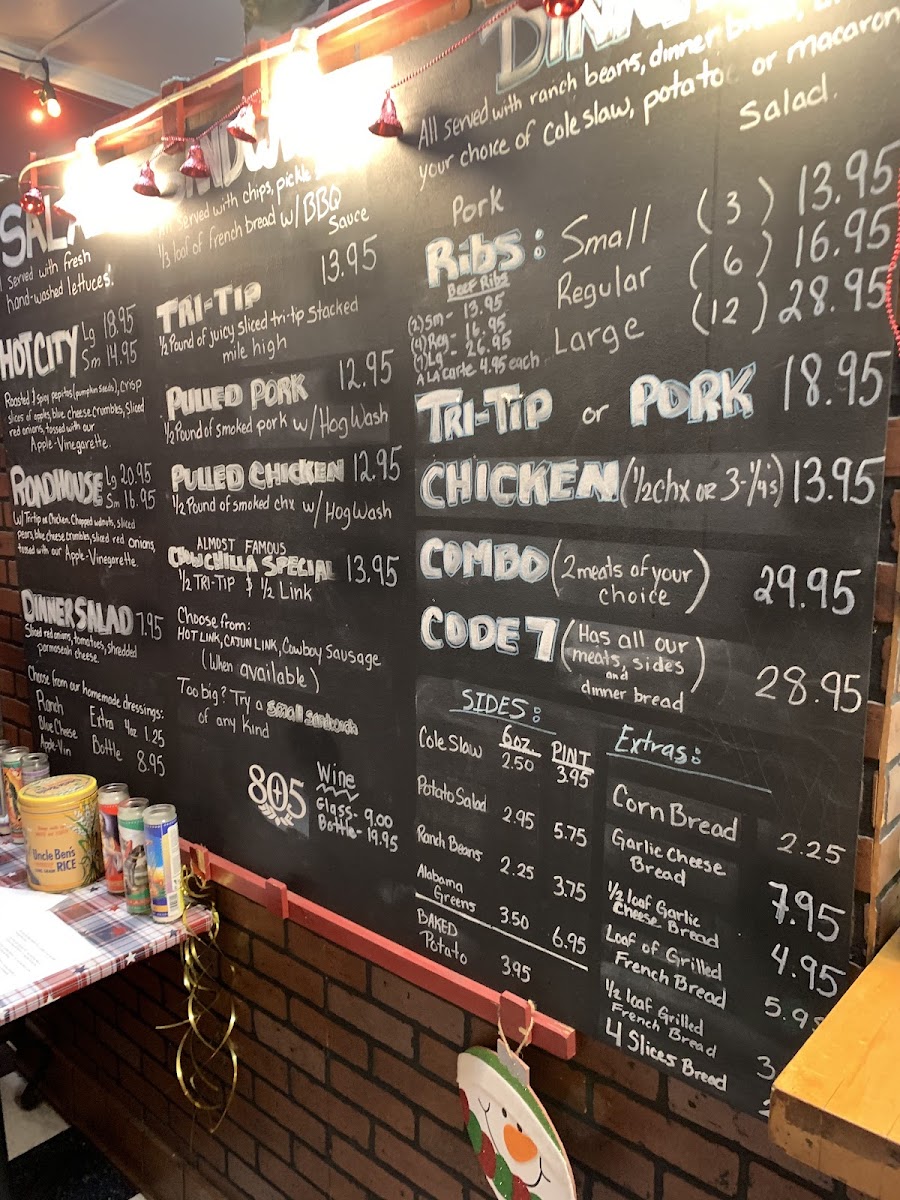 served with fresh
hand-washed lettuces.
HOT CITY Lg 18.95
Sm 14.95
Roasted & spicy pepitos (pumpkin seeds), crisp
slices of apples, blue cheese crumbles, sliced
red onions, tossed with our
Apple-Vinegarette.
ROADHOUSE Lg 20.95
Sm 16.95
W/ Tri tip or Chicken. Chopped walnuts, sliced
pears, blue cheese crumbles, sliced red onions,
tossed with our Apple-Vinegarette.
DINNER SALAD 7.95
Sliced red onions, tomatoes, shredded
parmesean cheese.
Choose from our homemade dressings:
Ranch
Blue Cheese
Apple-Vin
Extra 4oz 1.25
Bottle 8.95
served with chips, pickle
1/3 loaf of french bread w/ BBQ
Sauce
TRI-TIP 13.95
1/2 Pound of juicy sliced tri-tip stacked
mile high
PULLED PORK 12.95
1/2 Pound of smoked pork w/ Hog Wash
PULLED CHICKEN 12.95
1/2 Pound of smoked chx w/ Hog Wash
ALMOST FAMOUS
CHOWCHILLA SPECIAL 13.95
1/2 TRI-TIP & 1/2 Link
Choose from:
HOT LINK, CAJUN LINK, Cowboy Sausage
(When available)
Too big? Try a small sandwich
of any Kind
805
Wine
Glass- 9.00
Bottle- 19.95
All served with ranch beans, dinner bread,
your choice of Cole slaw, potato or macaroni
Salad.
Pork
Ribs: Small (3) 13.95
Regular (6) 16.95
Large (12) 28.95
Beef Ribs
(2) Sm - 13.95
(4) Reg - 16.95
(7) Lg - 26.95
A La Carte 4.95 each
TRI-TIP or PORK 18.95
CHICKEN (1/2 chx or 3-1/4s) 13.95
COMBO (2 meats of your
choice) 29.95
CODE 7 (Has all our
meats, sides
and
dinner bread) 28.95
SIDES:
6oz. PINT
Cole Slaw 2.50 3.95
Potato Salad 2.95 5.75
Ranch Beans 2.25 3.75
Alabama
Greens 3.50 6.95
BAKED
Potato 3.95
Extras:
Corn Bread 2.25
Garlic Cheese
Bread 7.95
1/2 loaf Garlic
Cheese Bread 4.95
Loaf of Grilled
French Bread
1/2 loaf Grilled
French Bread
4 Slices Bread
Uncle Ben's
RICE